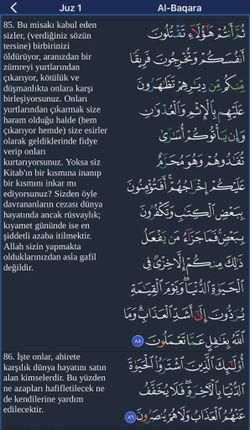 Juz 1
Al-Baqara
85. Bu misakı kabul eden
sizler, (verdiğiniz sözün
tersine) birbirinizi
öldürüyor, aranızdan bir
zümreyi yurtlarından
çıkarıyor, kötülük ve
düşmanlıkta onlara karşı
birleşiyorsunuz. Onları
yurtlarından çıkarmak size
haram olduğu halde (hem
çıkarıyor hemde) size esirler
olarak geldiklerinde fidye
verip onları
kurtarıyorsunuz. Yoksa siz
Kitab'ın bir kısmına inanıp
bir kısmını inkar mı
ediyorsunuz? Sizden öyle
davrananların cezası dünya
hayatında ancak rüsvaylık;
kıyamet gününde ise en
şiddetli azaba itilmektir.
Allah sizin yapmakta
olduklarınızdan asla gafil
değildir.
ثُمَّ أَنتُمْ هَٰؤُلَاءِ تَقْتُلُونَ
أَنفُسَكُمْ وَتُخْرِجُونَ فَرِيقًا
مِّنكُم مِّن دِيَارِهِمْ تَظَاهَرُونَ
عَلَيْهِم بِالْإِثْمِ وَالْعُدْوَانِ
وَإِن يَأْتُوكُمْ أُسَارَىٰ
تُفَادُوهُمْ وَهُوَ مُحَرَّمٌ
عَلَيْكُمْ إِخْرَاجُهُمْ أَفَتُؤْمِنُونَ
بِبَعْضِ الْكِتَابِ وَتَكْفُرُونَ
بِبَعْضٍ فَمَا جَزَاءُ مَن يَفْعَلُ
ذَٰلِكَ مِنكُمْ إِلَّا خِزْيٌ فِي
الْحَيَاةِ الدُّنْيَا وَيَوْمَ الْقِيَامَةِ
يُرَدُّونَ إِلَىٰ أَشَدِّ الْعَذَابِ وَمَا
اللَّهُ بِغَافِلٍ عَمَّا تَعْمَلُونَ ٨٥
86. İşte onlar, ahirete
karşılık dünya hayatını satın
alan kimselerdir. Bu yüzden
ne azapları hafifletilecek ne
de kendilerine yardım
edilecektir.
أُولَٰئِكَ الَّذِينَ اشْتَرَوُا الْحَيَاةَ
الدُّنْيَا بِالْآخِرَةِ فَلَا يُخَفَّفُ
عَنْهُمُ الْعَذَابُ وَلَا هُمْ يُنصَرُونَ ٨٦